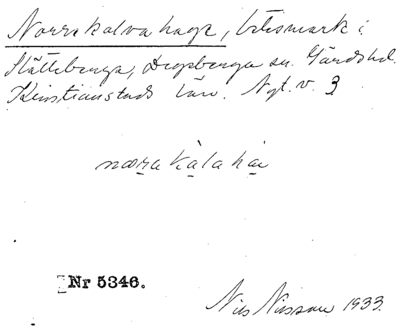 Norra kalvahage, betesmark i
Slätteberga, Degeberga sn. Gärds hd.
Kristianstads län. Nyt. v. 3
næra kàla hàı
Nr 5346.
Nils Nilsson 1933.